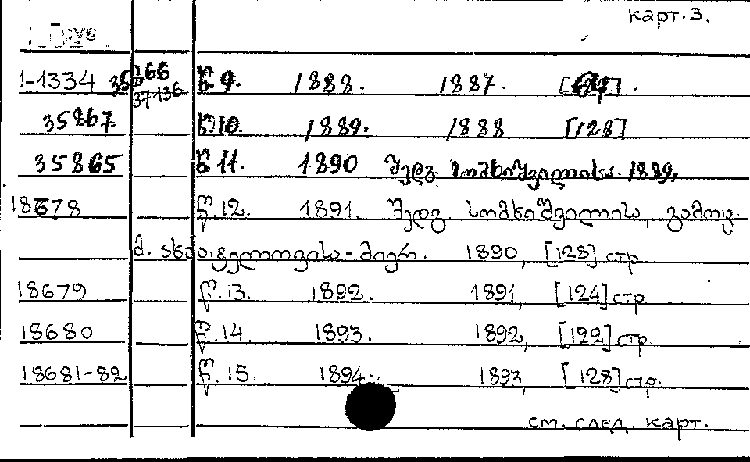 карт. 3.
1-1334 35866 წ 9. 1888. 1887.
37-136
35867 წ 10. 1889. 1888 [128]
35865 წ 11. 1890 შედგ. სომხიშვილისა. 1889,
18678 წ. 12. 1891. შედგ. სომხიშვილისა, გამოც.
1890, [128] стр
18679 წ. 13. 1892. 1891, [124] стр
18680 წ. 14. 1893. 1892, [122] стр.
18681-82 წ. 15. 1894. 1893, [128] стр.
см. след. карт.